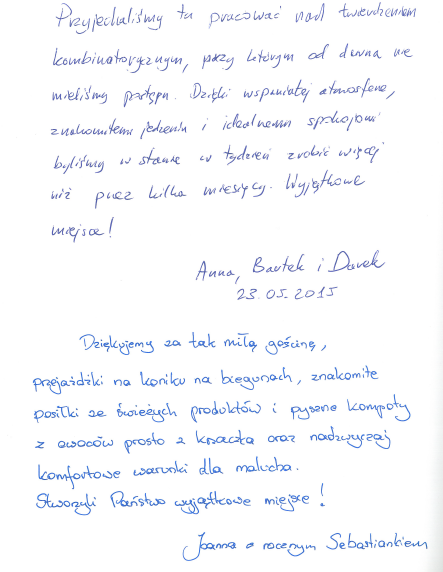 Przyjechaliśmy tu pracować nad twierdzeniem
kombinatorycznym, przy którym od dawna nie
mieliśmy postępu. Dzięki wspaniałej atmosferze,
znakomitemu jedzeniu i idealnemu spokojowi
byliśmy w stanie w tydzień zrobić więcej
niż przez kilka miesięcy. Wyjątkowe
miejsce!
Anna, Bartek i Darek
23.05.2015
Dziękujemy za tak miłą gościnę,
przejażdżki na koniku na biegunach, znakomite
posiłki ze świeżych produktów i pyszne kompoty
z owoców prosto z krzaczka oraz nadzwyczaj
komfortowe warunki dla malucha.
Stworzyli Państwo wyjątkowe miejsce!
Joanna z rocznym Sebastiankiem